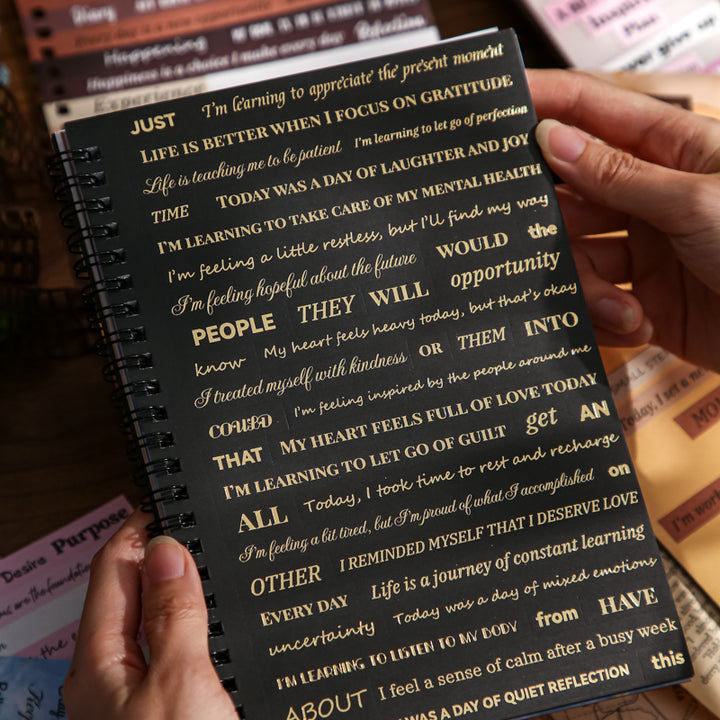 Diary
Every day is a new opportunity
Happening
Reflection
Happiness is a choice I make every day
Experience
JUST I'm learning to appreciate the present moment
LIFE IS BETTER WHEN I FOCUS ON GRATITUDE
Life is teaching me to be patient I'm learning to let go of perfection
TIME TODAY WAS A DAY OF LAUGHTER AND JOY
I'M LEARNING TO TAKE CARE OF MY MENTAL HEALTH
I'm feeling a little restless, but I'll find my way
I'm feeling hopeful about the future WOULD the
PEOPLE THEY WILL opportunity
know My heart feels heavy today, but that's okay
I treated myself with kindness OR THEM INTO
COULD I'm feeling inspired by the people around me
THAT MY HEART FEELS FULL OF LOVE TODAY
I'M LEARNING TO LET GO OF GUILT get AN
ALL Today, I took time to rest and recharge
I'm feeling a bit tired, but I'm proud of what I accomplished on
OTHER I REMINDED MYSELF THAT I DESERVE LOVE
EVERY DAY Life is a journey of constant learning
uncertainty Today was a day of mixed emotions
I'M LEARNING TO LISTEN TO MY BODY from HAVE
ABOUT I feel a sense of calm after a busy week
WAS A DAY OF QUIET REFLECTION this
Desire Purpose
are the foundation
SMALL STE
Today, I set a
MO
I'm wor